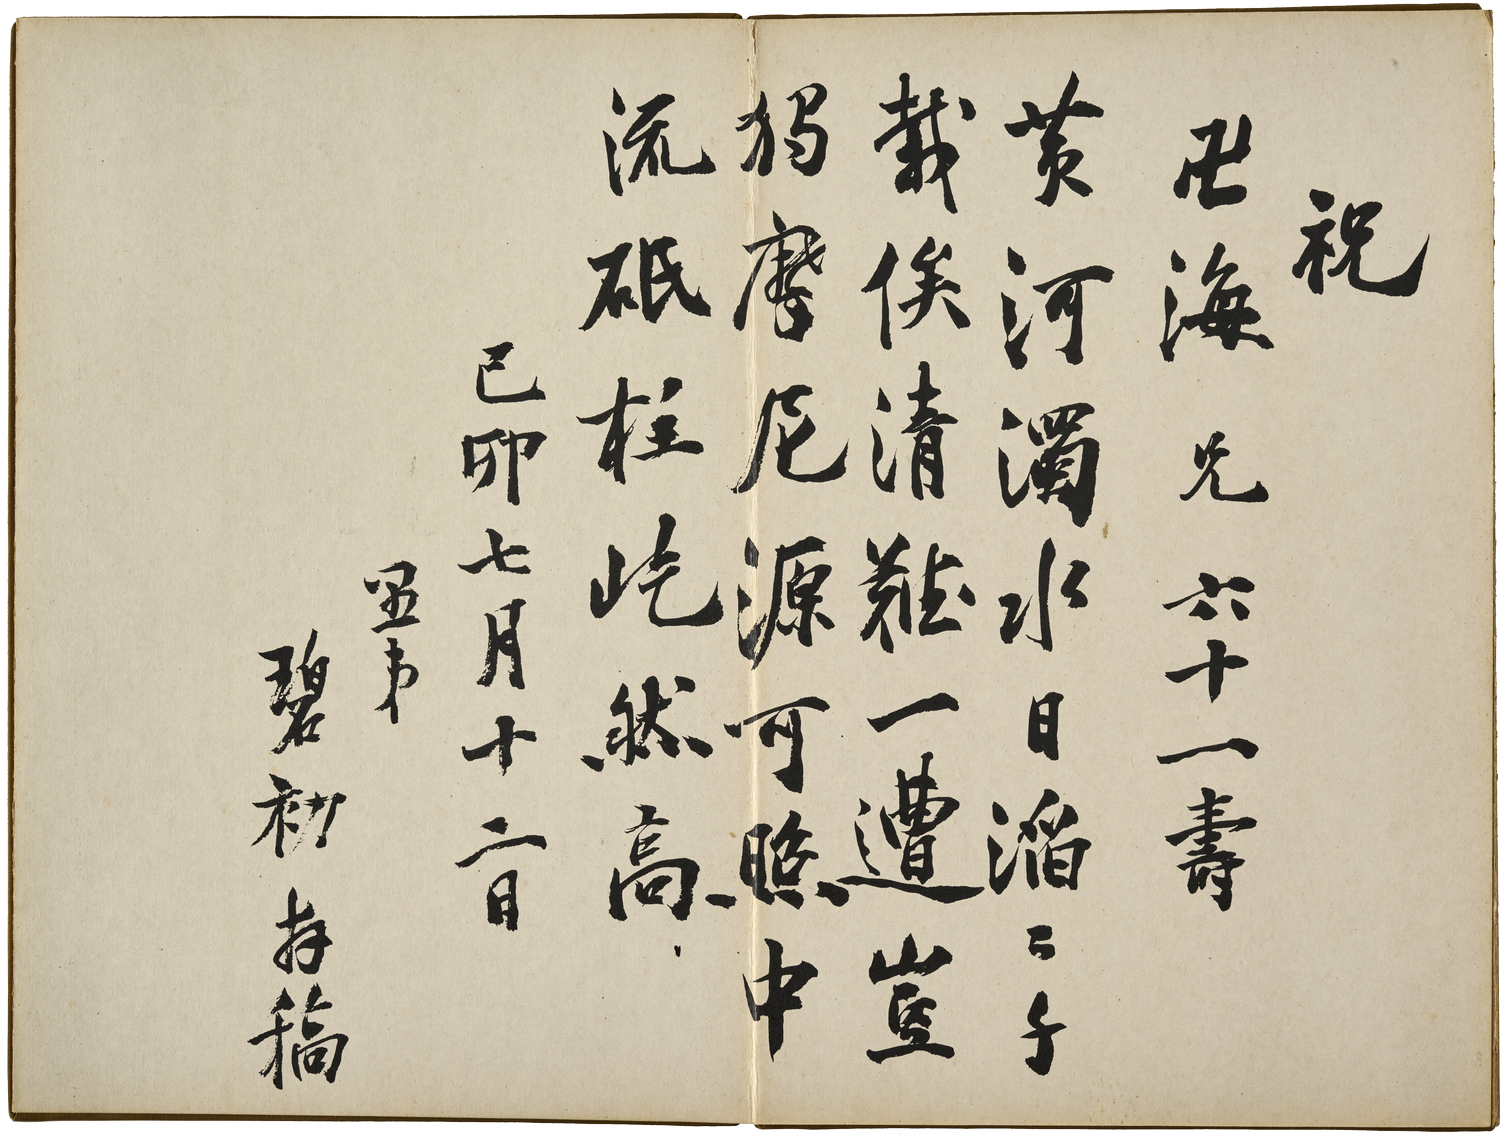 祝
卍海兄六十一壽
黃河濁水日滔〻千
載俟清難一遭豈
獨摩尼源可照中
流砥柱屹然高
己卯七月十二日
弟
碧初存稿